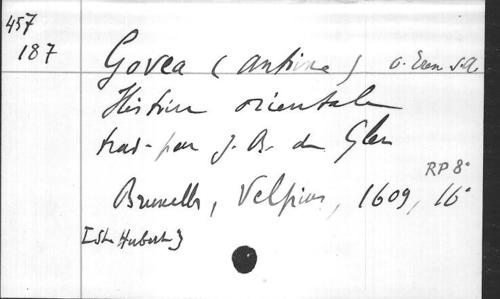 457
187
Govea (Antoine) o. Erem S. A.
Histoire orientale
trad. par J. B. du Glen
Bruxelles, Velpius, 1609, 16°
RP 8°
[St Hubert]